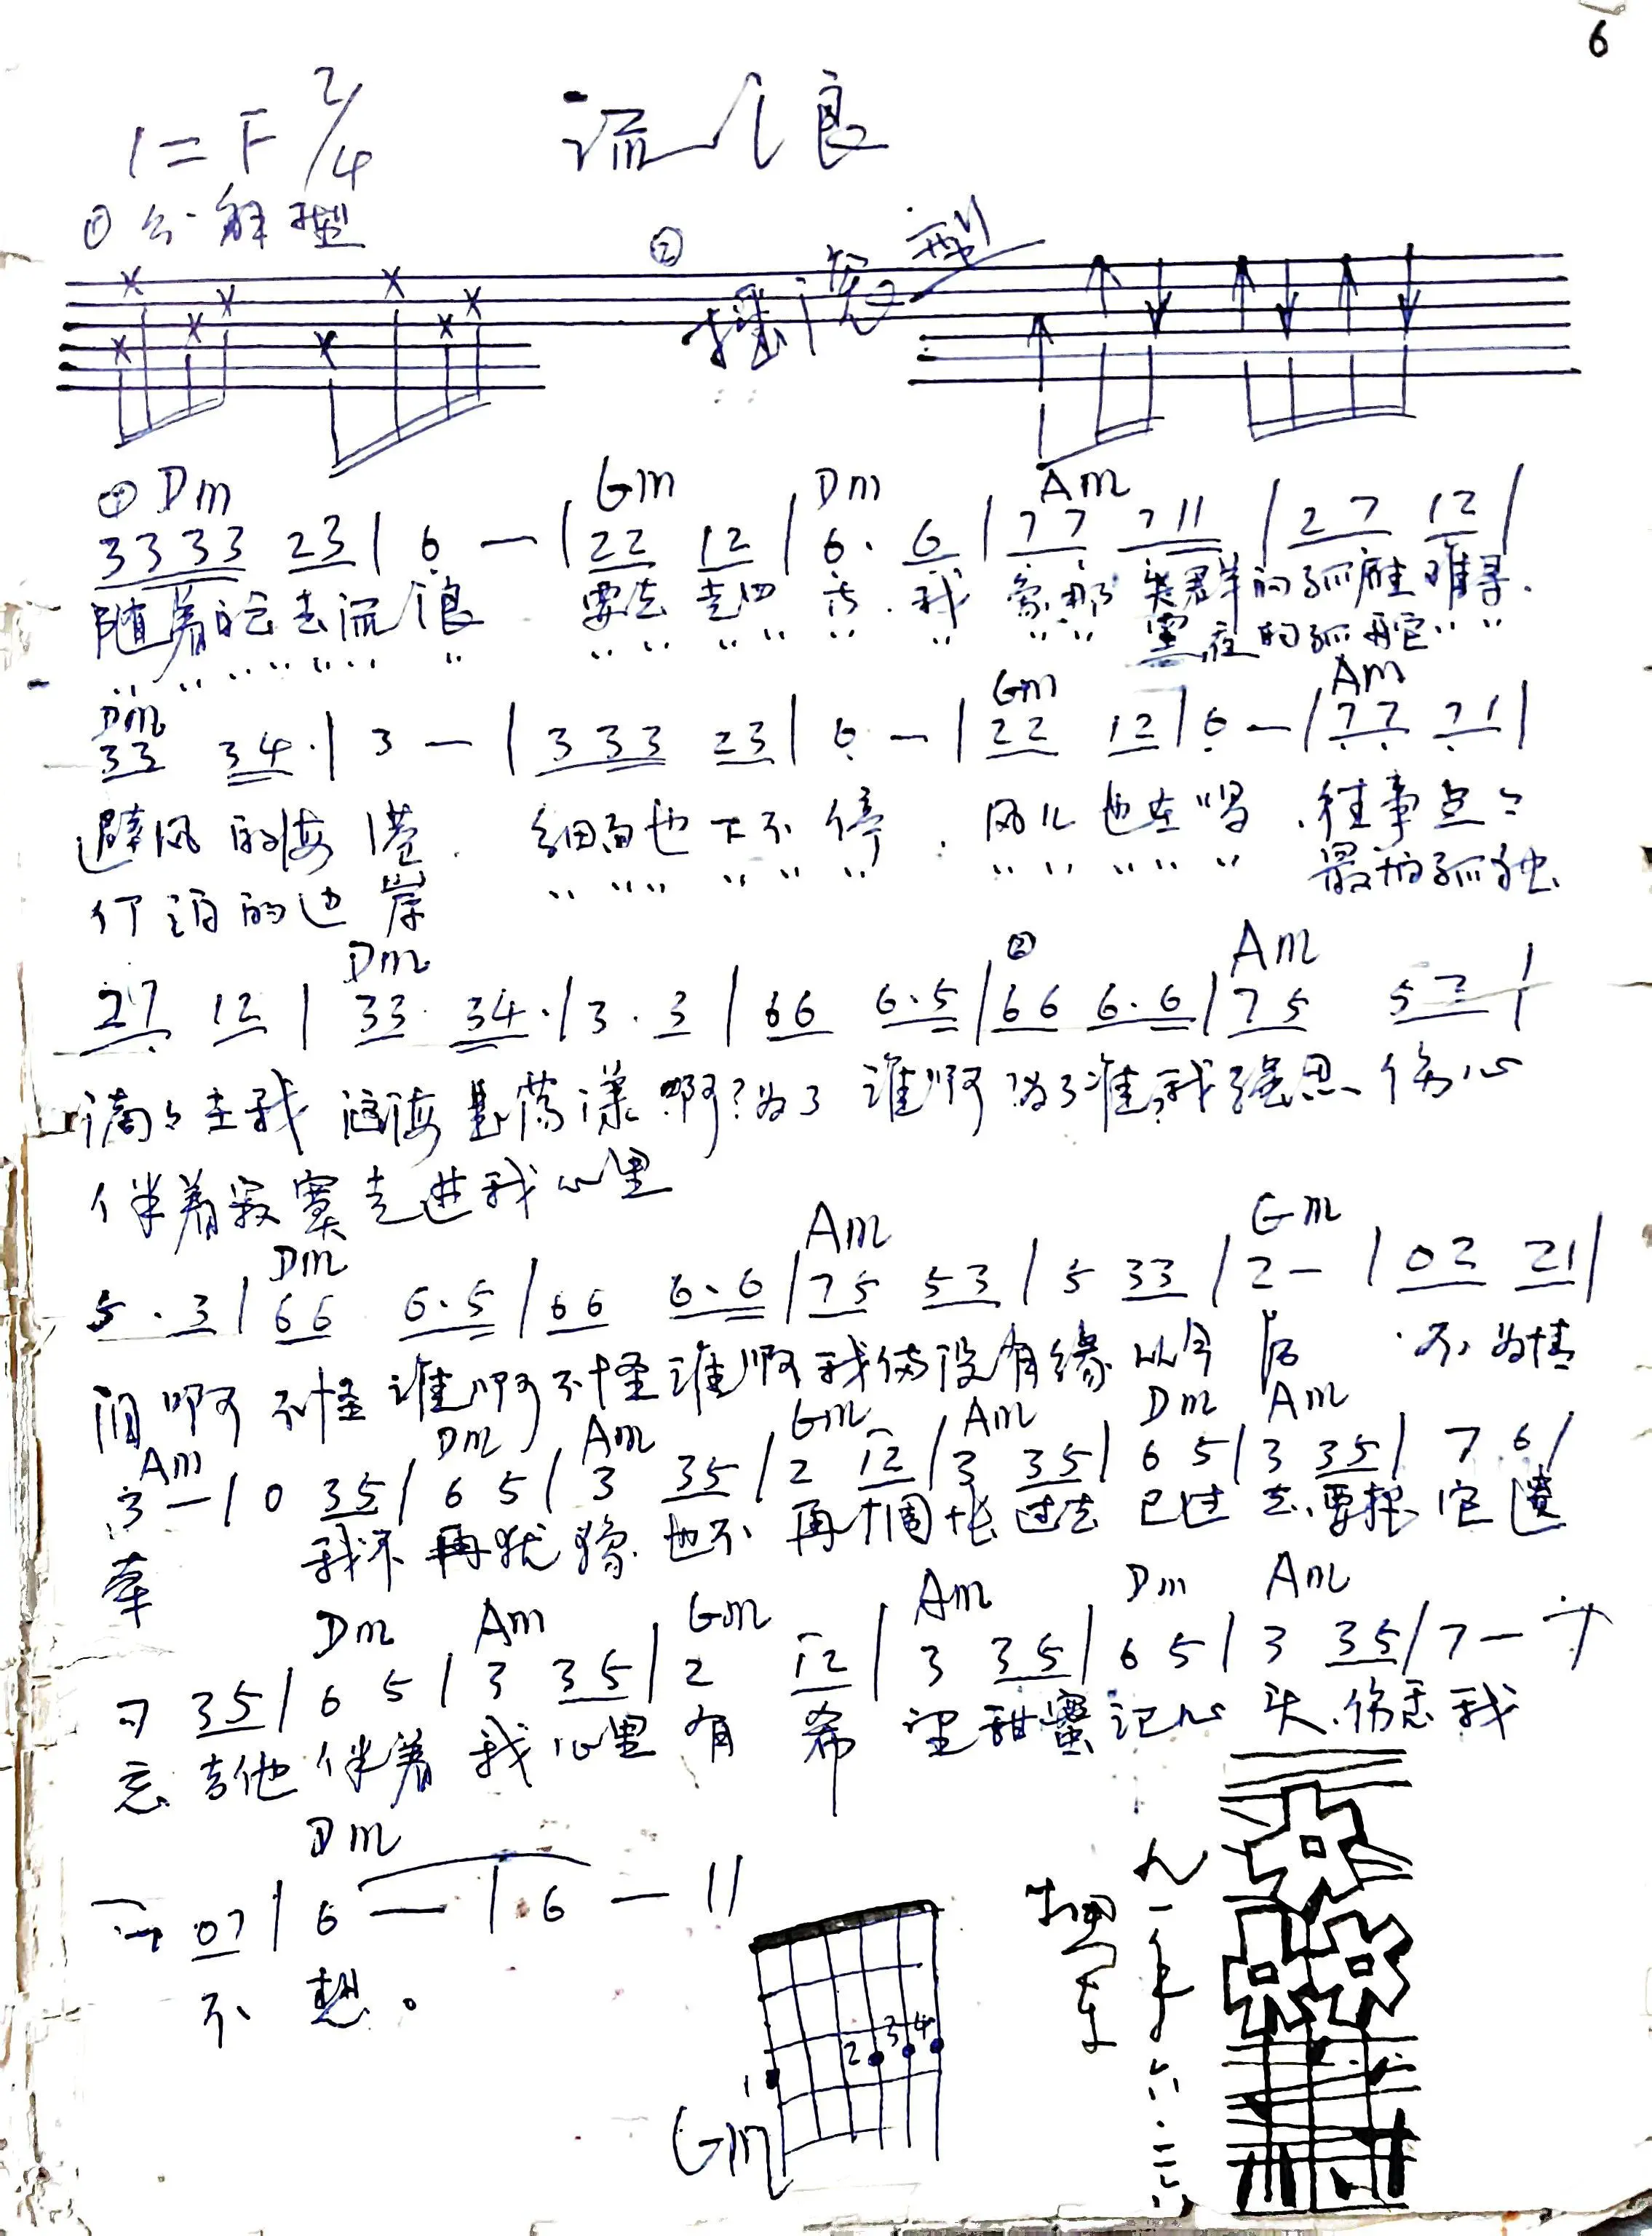 6
1=F 2/4 流浪
① 分解型 ② 摇滚型
① Dm Gm Dm Am
3333 23 | 6 — | 22 12 | 6· 6 | 77 711 | 27 12 |
随着白云去流浪 要去走四方. 我象那失群的孤雁难寻.
黑夜的孤舟
Dm Gm Am
33 34· | 3 — | 333 23 | 6 — | 22 12 | 6 — | 77 71 |
避风的海港. 细雨也下不停. 风儿也在唱. 往事点々
停泊的边岸 最怕孤独
Dm ② Am
27 12 | 33 34· | 3· 3 | 66 6·5 | 66 6·6 | 75 53 |
滴々在我脑海里荡漾 啊?为了谁啊为了谁,我强忍伤心
伴着寂寞走进我心里
Dm Am Gm
5·3 | 66 6·5 | 66 6·6 | 75 53 | 5 33 | 2 — | 02 21 |
泪啊不怪谁啊不怪谁啊我俩没有缘 从今后 不为情
Am Dm Am Gm Am Dm Am
3 — | 0 35 | 6 5 | 3 35 | 2 12 | 3 35 | 6 5 | 3 35 | 7 6 |
牵 我不再犹豫. 也不再惆怅 过去已过去,要把它遗
Dm Am Gm Am Dm Am
7 35 | 6 5 | 3 35 | 2 12 | 3 35 | 6 5 | 3 35 | 7 — 7
忘 吉他伴着我心里有希望甜蜜记心头.伤悲我
Dm
07 | 6 — | 6 — ||
不想。
1 2 3 4
Gm
九一年六.二六